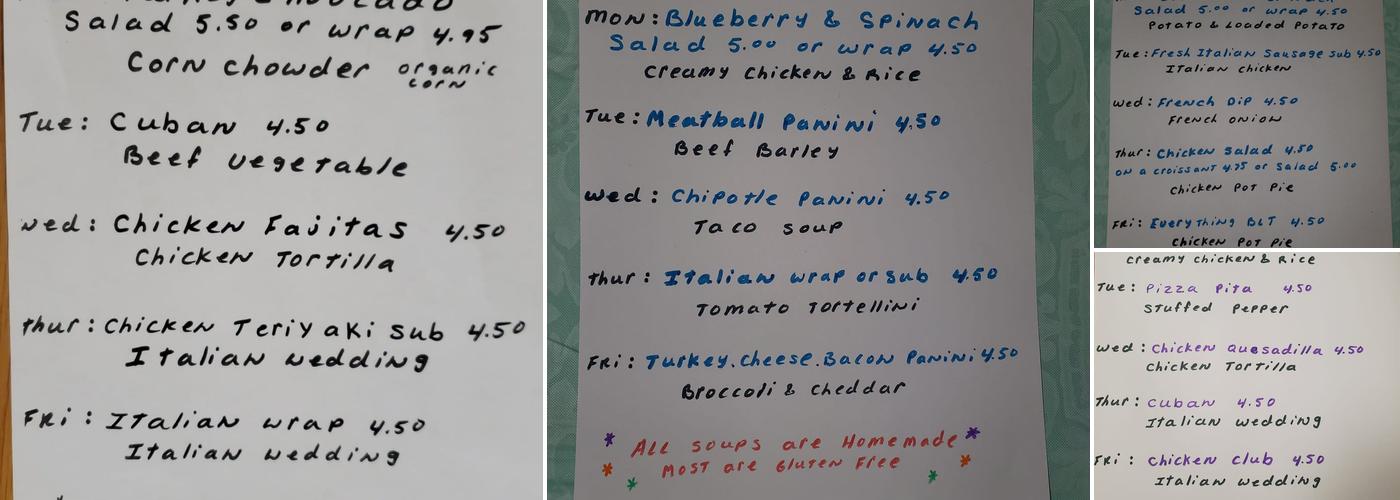 Salad 5.50 or wrap 4.95
Corn chowder organic corn
Tue: Cuban 4.50
Beef vegetable
wed: Chicken Fajitas 4.50
Chicken Tortilla
thur: Chicken Teriyaki Sub 4.50
Italian wedding
FRi: Italian wrap 4.50
Italian wedding
Mon: Blueberry & Spinach
Salad 5.00 or wrap 4.50
Creamy Chicken & Rice
Tue: Meatball Panini 4.50
Beef Barley
wed: Chipotle Panini 4.50
Taco soup
thur: Italian wrap or sub 4.50
Tomato Tortellini
FRi: Turkey. cheese. Bacon Panini 4.50
Broccoli & cheddar
* ALL soups are Homemade *
* Most are Gluten Free *
*
*
Salad 5.00 or wrap 4.50
Potato & Loaded Potato
Tue: Fresh Italian Sausage sub 4.50
Italian chicken
wed: French Dip 4.50
French onion
thur: Chicken Salad 4.50
on a croissant 4.75 or Salad 5.00
chicken Pot Pie
FRi: Everything BLT 4.50
chicken Pot Pie
creamy chicken & Rice
Tue: Pizza Pita 4.50
Stuffed Pepper
wed: Chicken Quesadilla 4.50
Chicken Tortilla
Thur: Cuban 4.50
Italian wedding
FRi: Chicken Club 4.50
Italian wedding